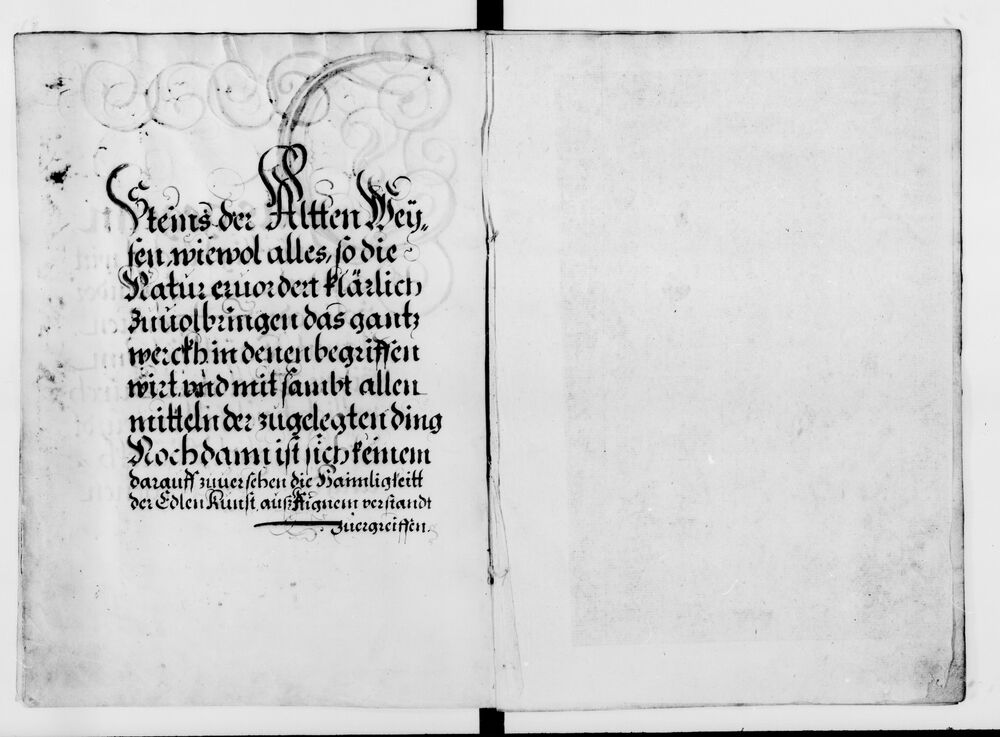 Steins der Altten Wey„
sen, wiewol alles, so die
Natur eruordert klärlich
Zuuolbringen das gantz
werckh in denen begriffen
wirt, vnd mit sambt allen
mitteln der zugelegten ding
Noch dann ist sich keinem
darauff zuuersehen die Haimligkeitt
der Edlen Kunst, auß Aignem verstandt
Zuergreiffen.